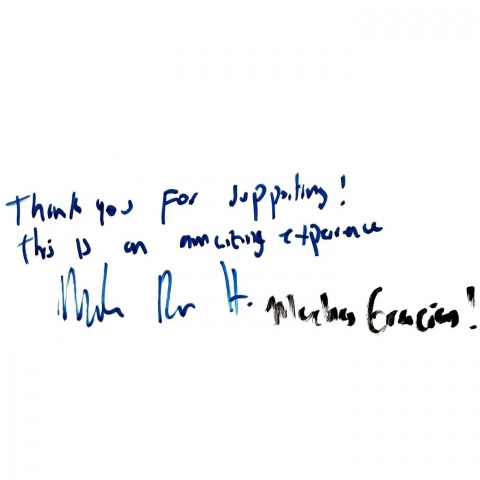 Thank you for supporting!
this is an amazing experience
H. Muchas Gracias!